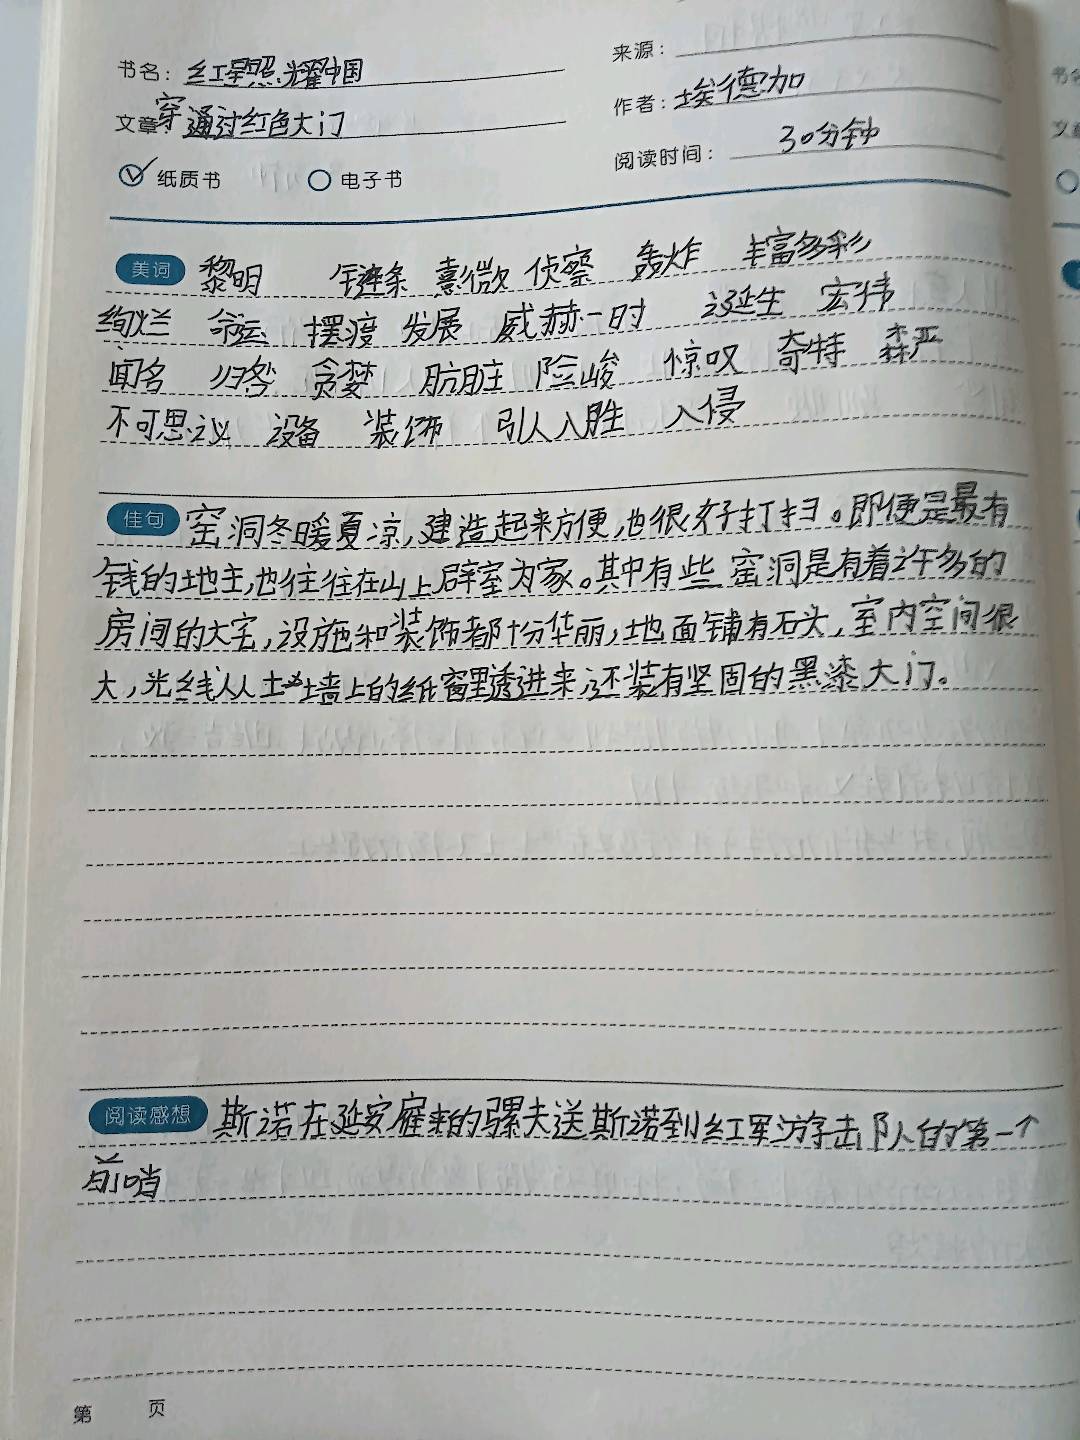 书名：红星照耀中国
来源：
文章 穿通过红色大门
作者：埃德加
纸质书 电子书
阅读时间：30分钟
美词 黎明 链条 熹微 侦察 轰炸 丰富多彩
绚烂 命运 摆渡 发展 威赫一时 诞生 宏伟
闻名 归咎 贪婪 肮脏 险峻 惊叹 奇特 森严
不可思议 设备 装饰 引人入胜 入侵
佳句 窑洞冬暖夏凉，建造起来方便，也很好打扫。即便是最有
钱的地主，也往往在山上辟室为家。其中有些窑洞是有着许多的
房间的大宅，设施和装饰都十分华丽，地面铺有石头，室内空间很
大，光线从土墙上的纸窗里透进来，还装有坚固的黑漆大门。
阅读感想 斯诺在延安雇来的骡夫送斯诺到红军游击队的第一个
前哨
第 页